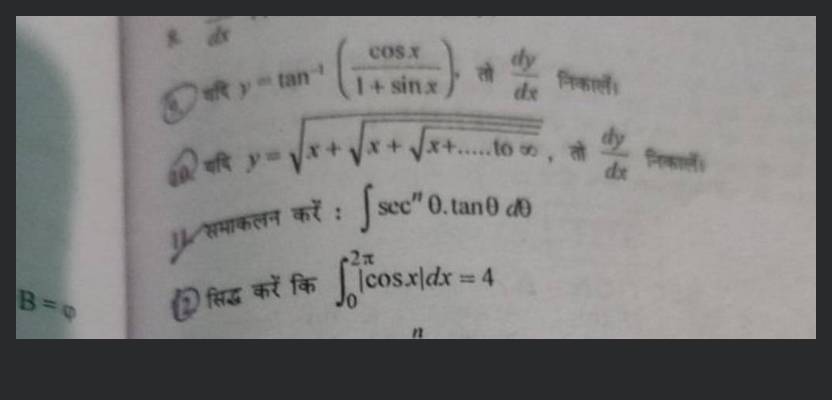 8. dx
9. यदि y = tan⁻¹ (cos x / 1 + sin x), तो dy/dx निकालें।
10. यदि y = √x + √x + √x+.....to ∞, तो dy/dx निकालें।
11. समाकलन करें : ∫ secⁿ θ.tanθ dθ
12. सिद्ध करें कि ∫₀²π |cosx|dx = 4
B = φ
n